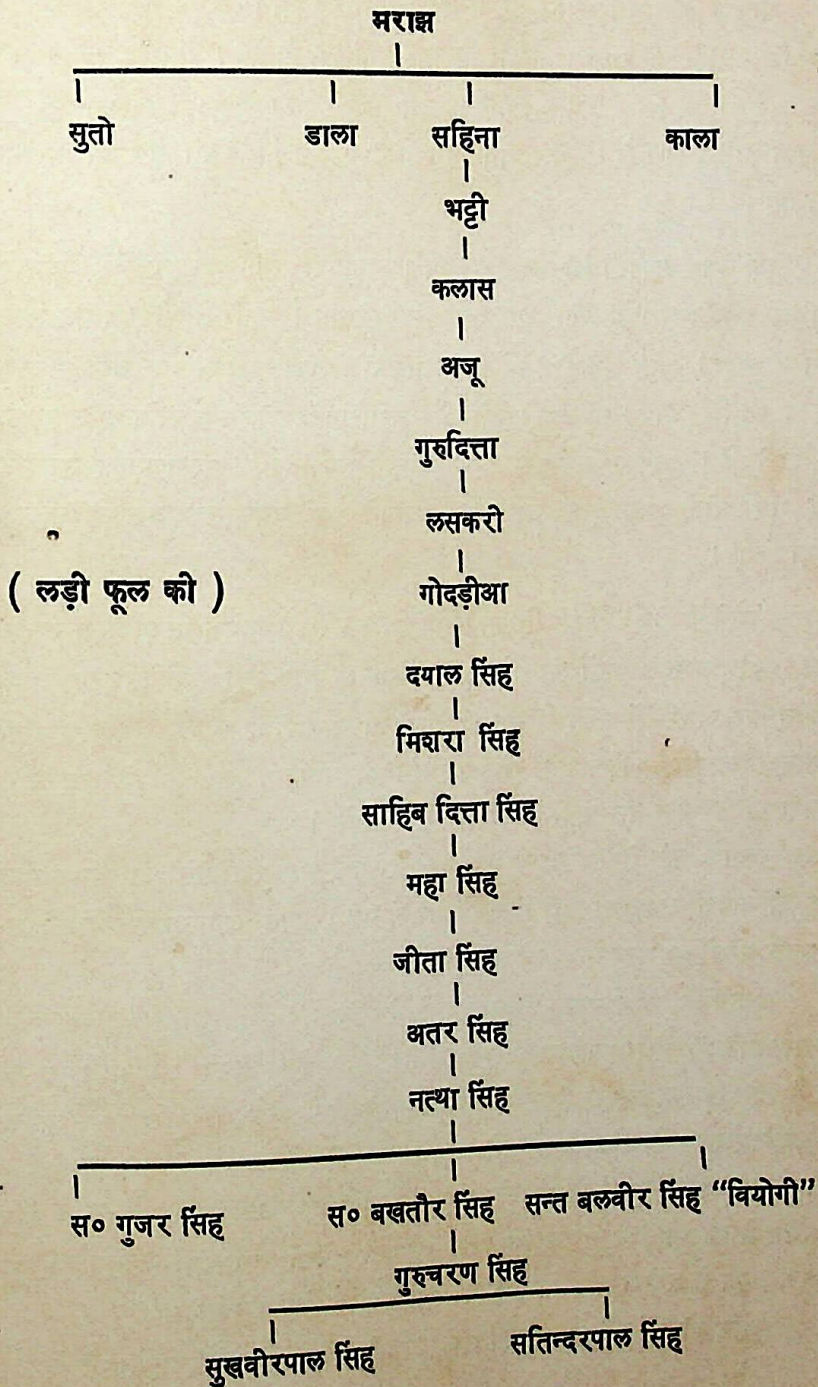 मराझ
सुतो डाला सहिना काला
भट्टी
कलास
अजू
गुरुदित्ता
लसकरी
( लड़ी फूल की ) गोदड़ीआ
दयाल सिंह
मिशरा सिंह
साहिब दित्ता सिंह
महा सिंह
जीता सिंह
अतर सिंह
नत्था सिंह
स० गुजर सिंह स० बखतौर सिंह सन्त बलवीर सिंह “वियोगी”
गुरुचरण सिंह
सुखवीरपाल सिंह सतिन्दरपाल सिंह